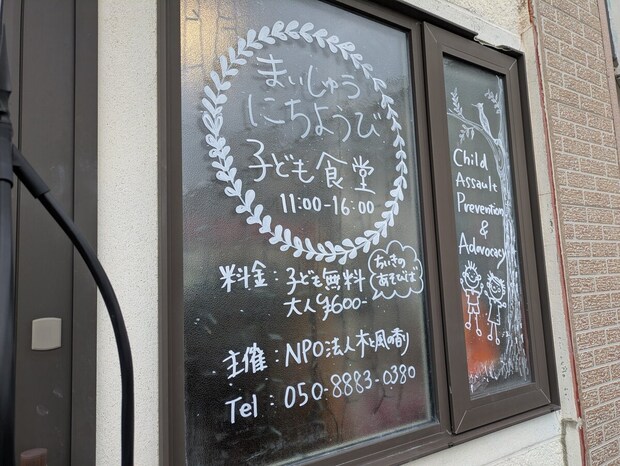 まいしゅう
にちようび
子ども食堂
11:00-16:00
料金：子ども無料
大人¥600-
ちいきの
あそびば
主催：NPO法人木と風の香り
Tel：050-8883-0380
Child
Assault
Prevention
&
Adovocacy